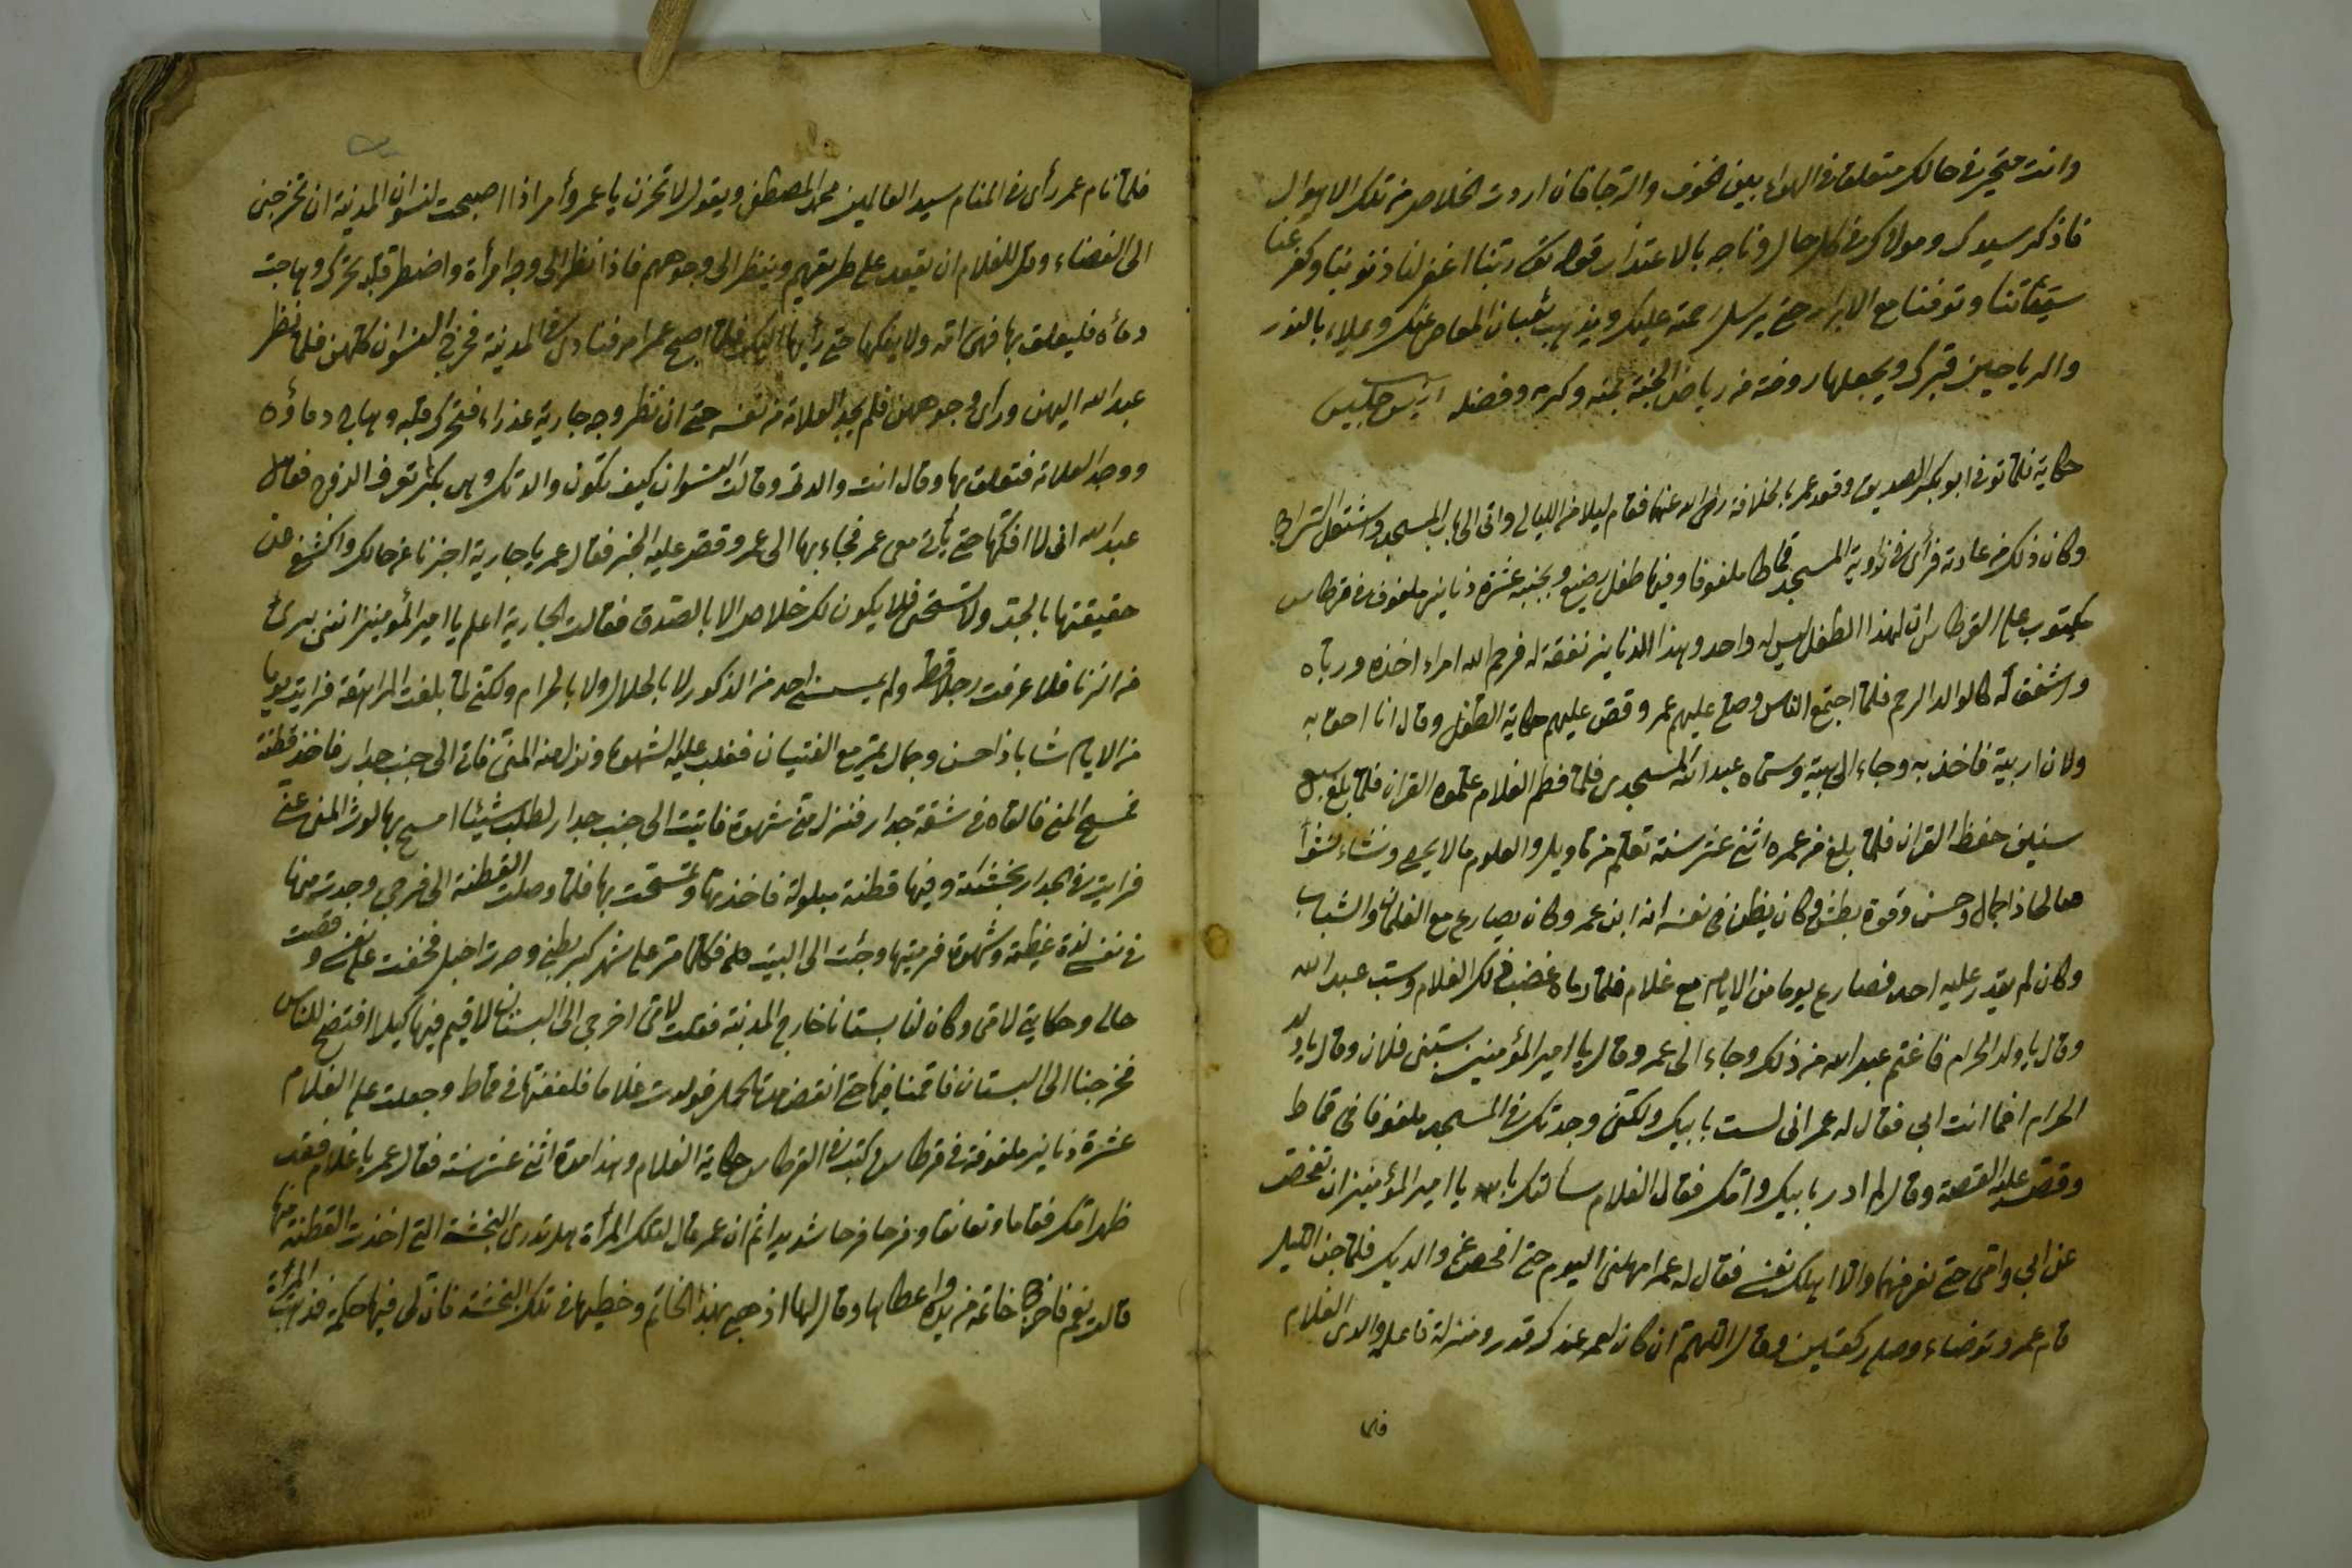 وانت متحير في حالك متعلق في الهواء بين الخوف والرجا فان اردت الخلاص من تلك الاهوال
فاذكر سيدك ومولاك في كل حال وناجه بالاعتذار قوله تع ربنا اغفر لنا ذنوبنا وكفر عنا
سيئاتنا وتوفنا مع الابرار حتى يرسل رحمته عليك ويذهب ثعبان المعاصي عنك ويملاء بالنور
والرياحين قبرك ويجعلها روضة من رياض الجنة بمنه وكرمه وفضله
حكاية فلما توفى ابو بكر الصديق وقعد عمر بالخلافة رضي الله عنهما فقام ليلا من الليالي واتى الى باب المسجد واشتعل السراج
وكان ذلك من عادته فرأى في زاوية المسجد قماطا ملفوفا وفيها طفل رضيع وبجنبه عشرة دنانير ملفوف في قرطاس
مكتوب على القرطاس ان لهذا الطفل ليس له واحد وهذا الدنانير نفقة له فرحم الله امراء اخذه ورباه
واشفق له كالوالد الرحم فلما اجتمع الناس وصلى عليهم عمر وقص عليهم حكاية الطفل وقال انا احق به
ولان اربيه فاخذ به وجاء الى بيته وسماه عبد الله المسجدى فلما فطم الغلام علموه القران فلما بلغ سبع
سنين حفظ القران فلما بلغ من عمره اثنى عشر سنة تعلم من تاويل والعلوم مالا يحصى ونشاء نشوأ
صالحا ذا جمال وحسن وقوة بطش وكان يظن في نفسه انه ابن عمر وكان يصارع مع الغلمان والشباب
وكان لم يقدر عليه احد فصارع يوما من الايام مع غلام فلما رماه غضب ذلك الغلام وسب عبد الله
وقال يا ولد الحرام فاغتم عبد الله من ذلك وجاء الى عمر وقال يا امير المؤمنين سبنى فلان وقال يا ولد
الحرام افما انت ابي فقال له عمر انى لست بابيك ولكننى وجدتك في المسجد ملفوفا في قماط
وقص عليه القصة وقال لم ادر بابيك وامك فقال الغلام سألتك بالله يا امير المؤمنين ان تفحص
عن ابي وامى حتى نعرفهما والا اهلك نفسى فقال له عمر امهلنى اليوم حتى افحص عن والديك فلما جن الليل
قام عمر وتوضاء وصلى ركعتين وقال اللهم ان كان لعمر عندك قدر ومنزلة فاعلم والدى الغلام
فلما
فلما نام عمر رأى في المنام سيد العالمين محمد المصطفى ويقول لا تحزن يا عمر وأمر اذا اصبحت لنسوان المدينة ان تخرجن
الى الفضاء وقل للغلام ان يقعد على طريقهم وينظر الى وجوههم فاذا نظر الى وجه امرأة واضطر قلبه تحرك وهاجت
دماؤه فليعلق بها فهى امه ولا يفكها حتى يأتيها اليك فلما اصبح عمر امر فنادى في المدينة فخرج النسوان كلهن فلما نظر
عبد الله اليهن ورأى وجوههن فلم يجد العلامة من نفسه حتى ان نظر وجه جارية عذراء فتحرك قلبه وهاج دماؤه
ووجد العلامة فتعلق بها وقال انت والدتى وقالت النسوان كيف تكون والدتك وهى بكر لم تعرف الزوج فقال
عبد الله انى لا افكها حتى يأتى معى عمر فجاء بها الى عمر وقص عليه الخبر فقال عمر يا جارية اخبرنا عن حالك واكشفى عن
حقيقتها بالجد ولا تستحى فلا يكون لك خلاص الا بالصدق فقالت الجارية اعلم يا امير المؤمنين اننى برئ
من الزنا فلا عرفت رجلا قط ولم يمسنى احد من الذكور لا بالحلال ولا بالحرام ولكنى لما بلغت المراهقة فرايت يوما
من الايام شابا ذا حسن وجمال يمر مع الفتيان فغلب عليه الشهوة ونزل منه المنى فاتى الى جنب جدار فاخذ قطنة
فمسح المنى فالقاه في شقة جدار فنزل منى شهوة فاتيت الى جنب جدار لطلب شيئا امسح بها لوث المنى عنى
فرايت في الجدار بخشئة وفيها قطنة مبلولة فاخذتها وتمسحت بها فلما وصلت القطنة الى فرجى وجدت منها
في نفسى لذة عظيمة وشهوة فرميتها وجئت الى البيت فلما مر على شهر كبر بطنى وصرت احبل فخفت على نفسى وقصت
حالى وحكايتى لامى وكان لنا بستانا خارج المدينة فقلت لامى اخرجى الى البستان لاقيم فيها كيلا افتضح للناس
فخرجنا الى البستان فاقمنا فيها حتى انقض مدة الحمل فولدت غلاما فلففتها في قماط وجعلت على الغلام
عشرة دنانير ملفوفة في قرطاس وكتبت في القرطاس حكاية الغلام وهذا مدة اثنى عشر سنة فقال عمر يا غلام فقد
ظهر امك فقاما وتعانقا وفرحا فرحا شديدا ثم ان عمر قال لتلك المرأة هل تدرى البخشة التى اخذت القطنة منها
قالت نعم فاخرج خاتمه من يده واعطاها وقال لها اذهبى بهذا الخاتم وحطيها في تلك البخشة فان لى فيها حكمة فذهبت المرأة